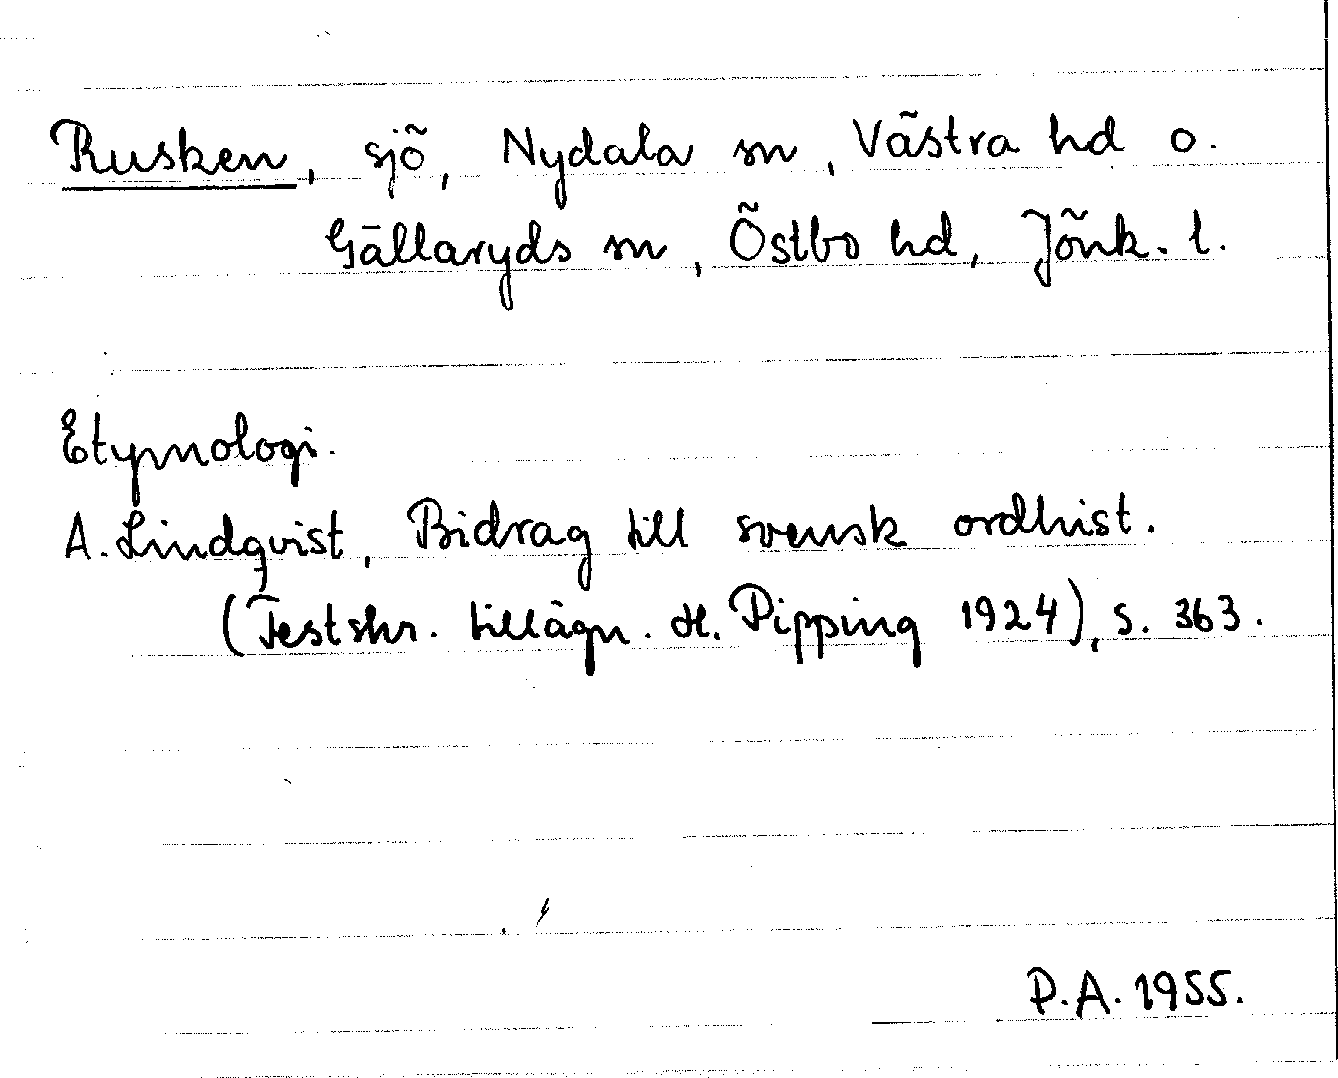 Rusken, sjö, Nydala sn, Västra hd o.
Gällaryds sn, Östbo hd, Jönk. l.
Etymologi.
A. Lindqvist, Bidrag till svensk ordhist.
(Festskr. tillägn. H. Pipping 1924), s. 363.
P.A. 1955.